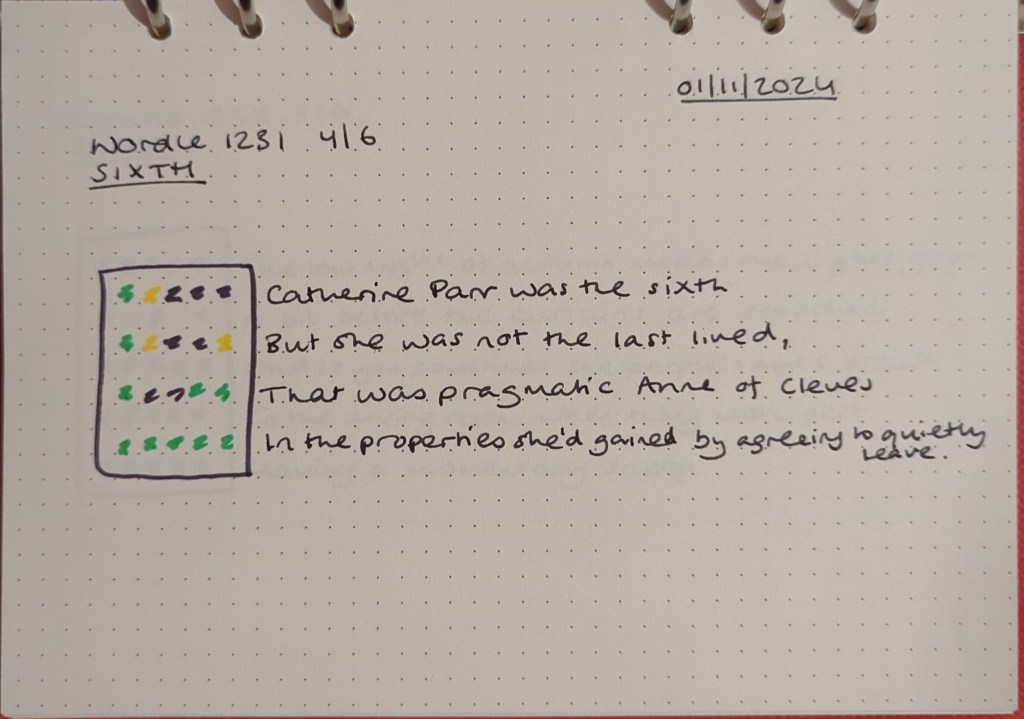 01/11/2024
Wordle 1231 4/6
SIXTH
Catherine Parr was the sixth
But she was not the last lived,
That was pragmatic Anne of Cleves
In the properties she'd gained by agreeing to quietly
leave.